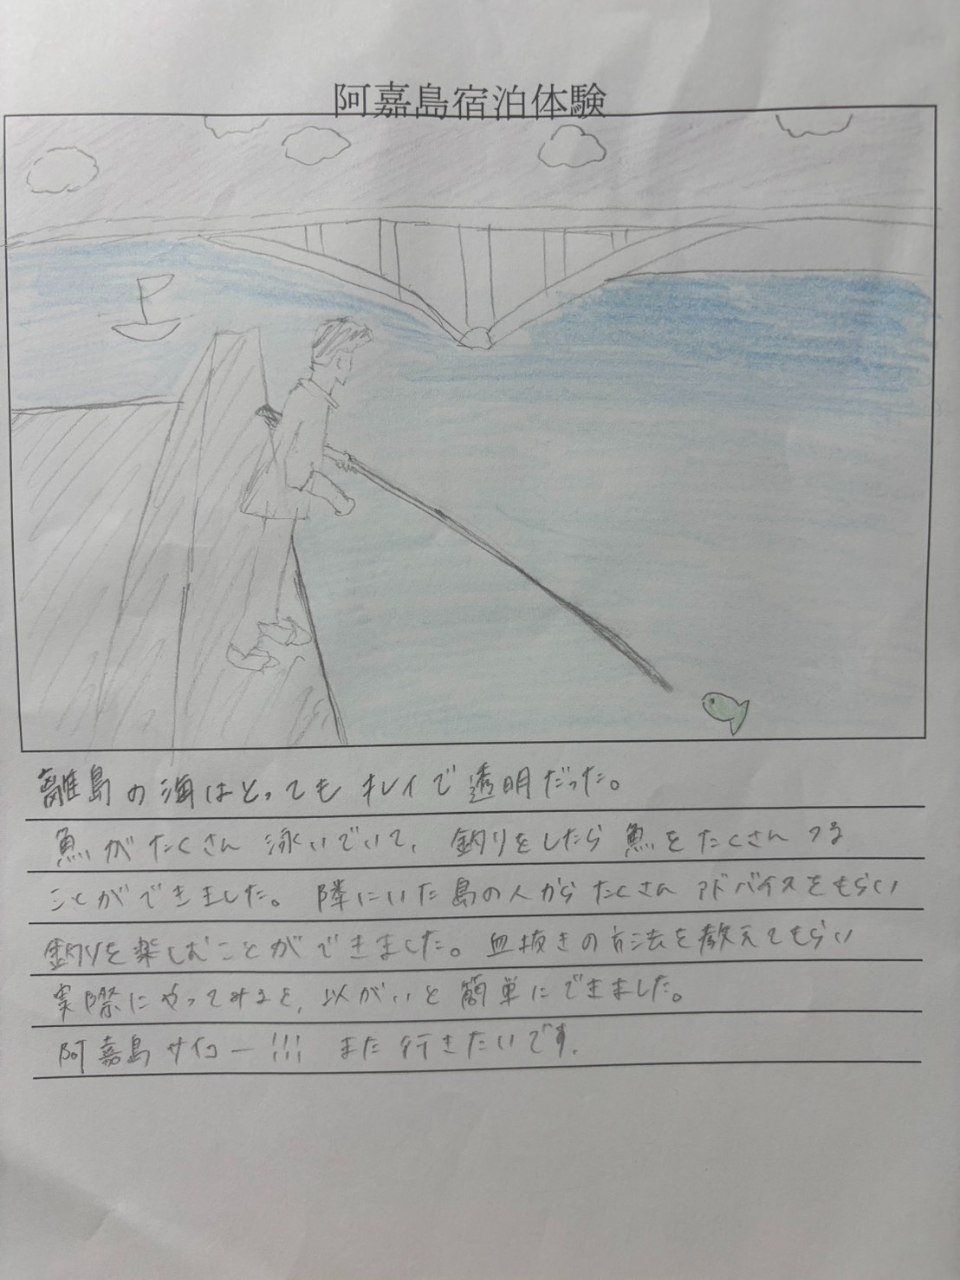 阿嘉島宿泊体験
離島の海はとってもキレイで透明だった。
魚がたくさん泳いでいて、釣りをしたら魚をたくさんつる
ことができました。隣にいた島の人からたくさんアドバイスをもらい
釣りを楽しむことができました。血抜きの方法を教えてもらい
実際にやってみると、以がいと簡単にできました。
阿嘉島サイコー!!! また行きたいです。